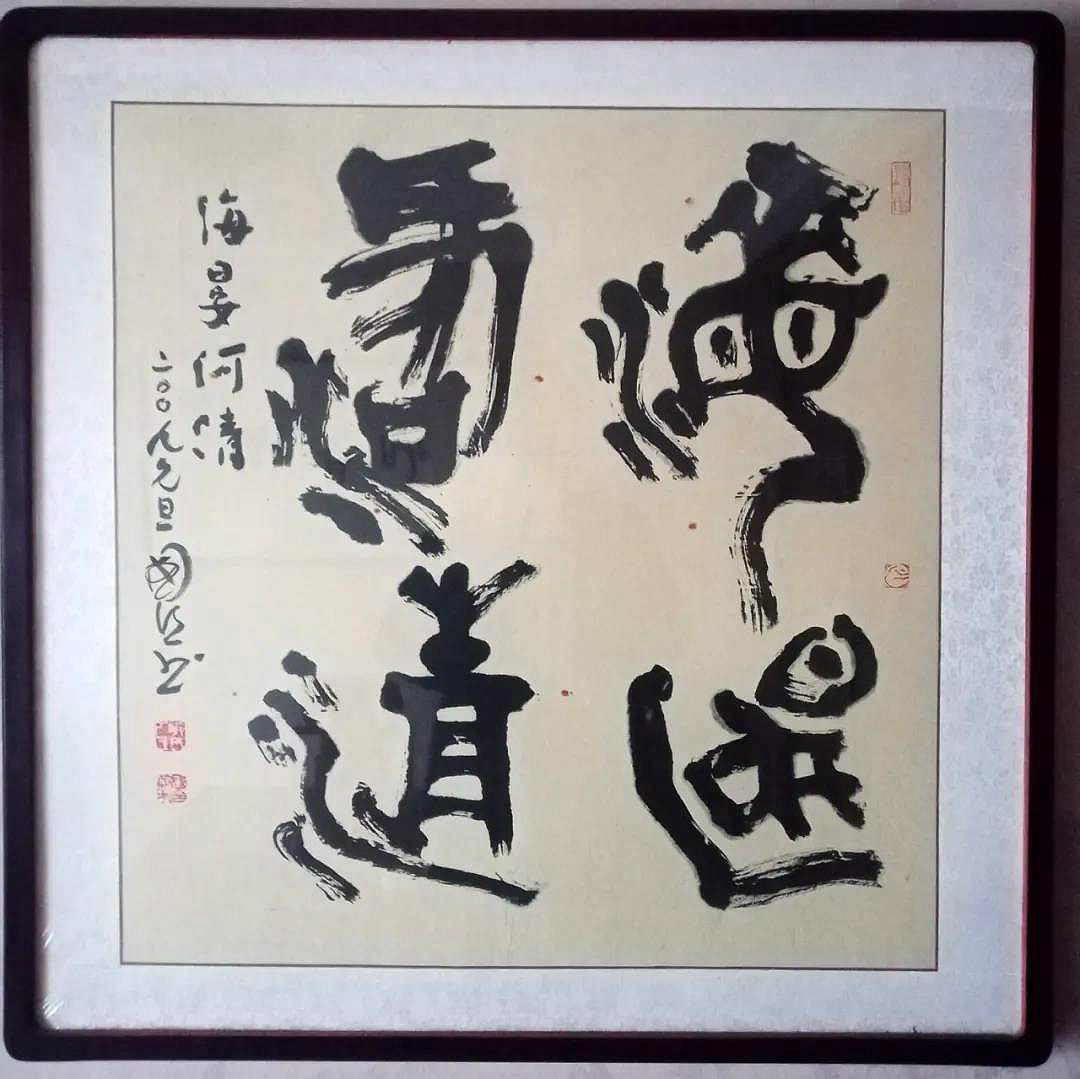 海晏
河清
海晏河清
二〇〇九元旦